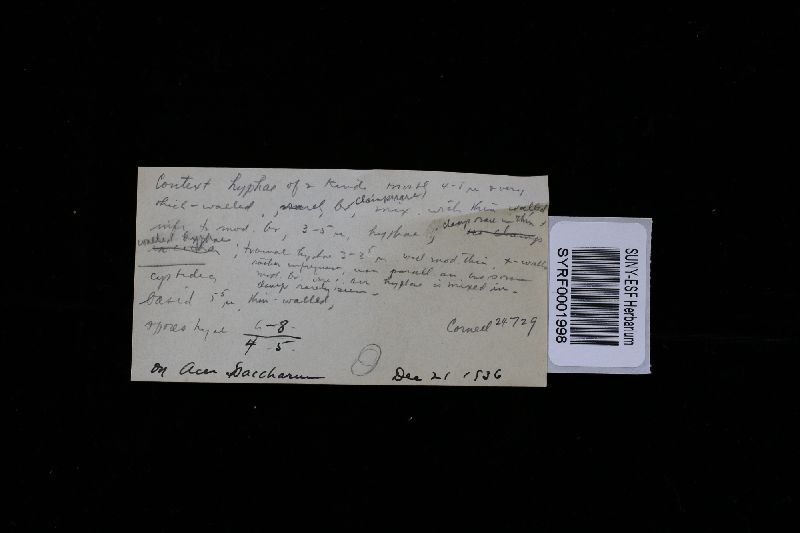 Context hyphae of 2 kinds mostly 4-5 µ & very
thick-walled, br, clamp rare, mix with thin walled
infr. to mod. br, 3-5 µ, hyphae, clamp rare in thin
walled hyphae no clamps
tramal hyphae 3-3.5 µ wal mod. thin, x-walls
rather infrequent, non parall
mod. br hyphae is mixed in
clamp rarely seen
cystidia
basid 5.5 µ, thin-walled,
spores hyal 6-8
4-5
Cornell 24729
on Acer Saccharum Dec 21 1936
SUNY-ESF Herbarium
SYRF0001998